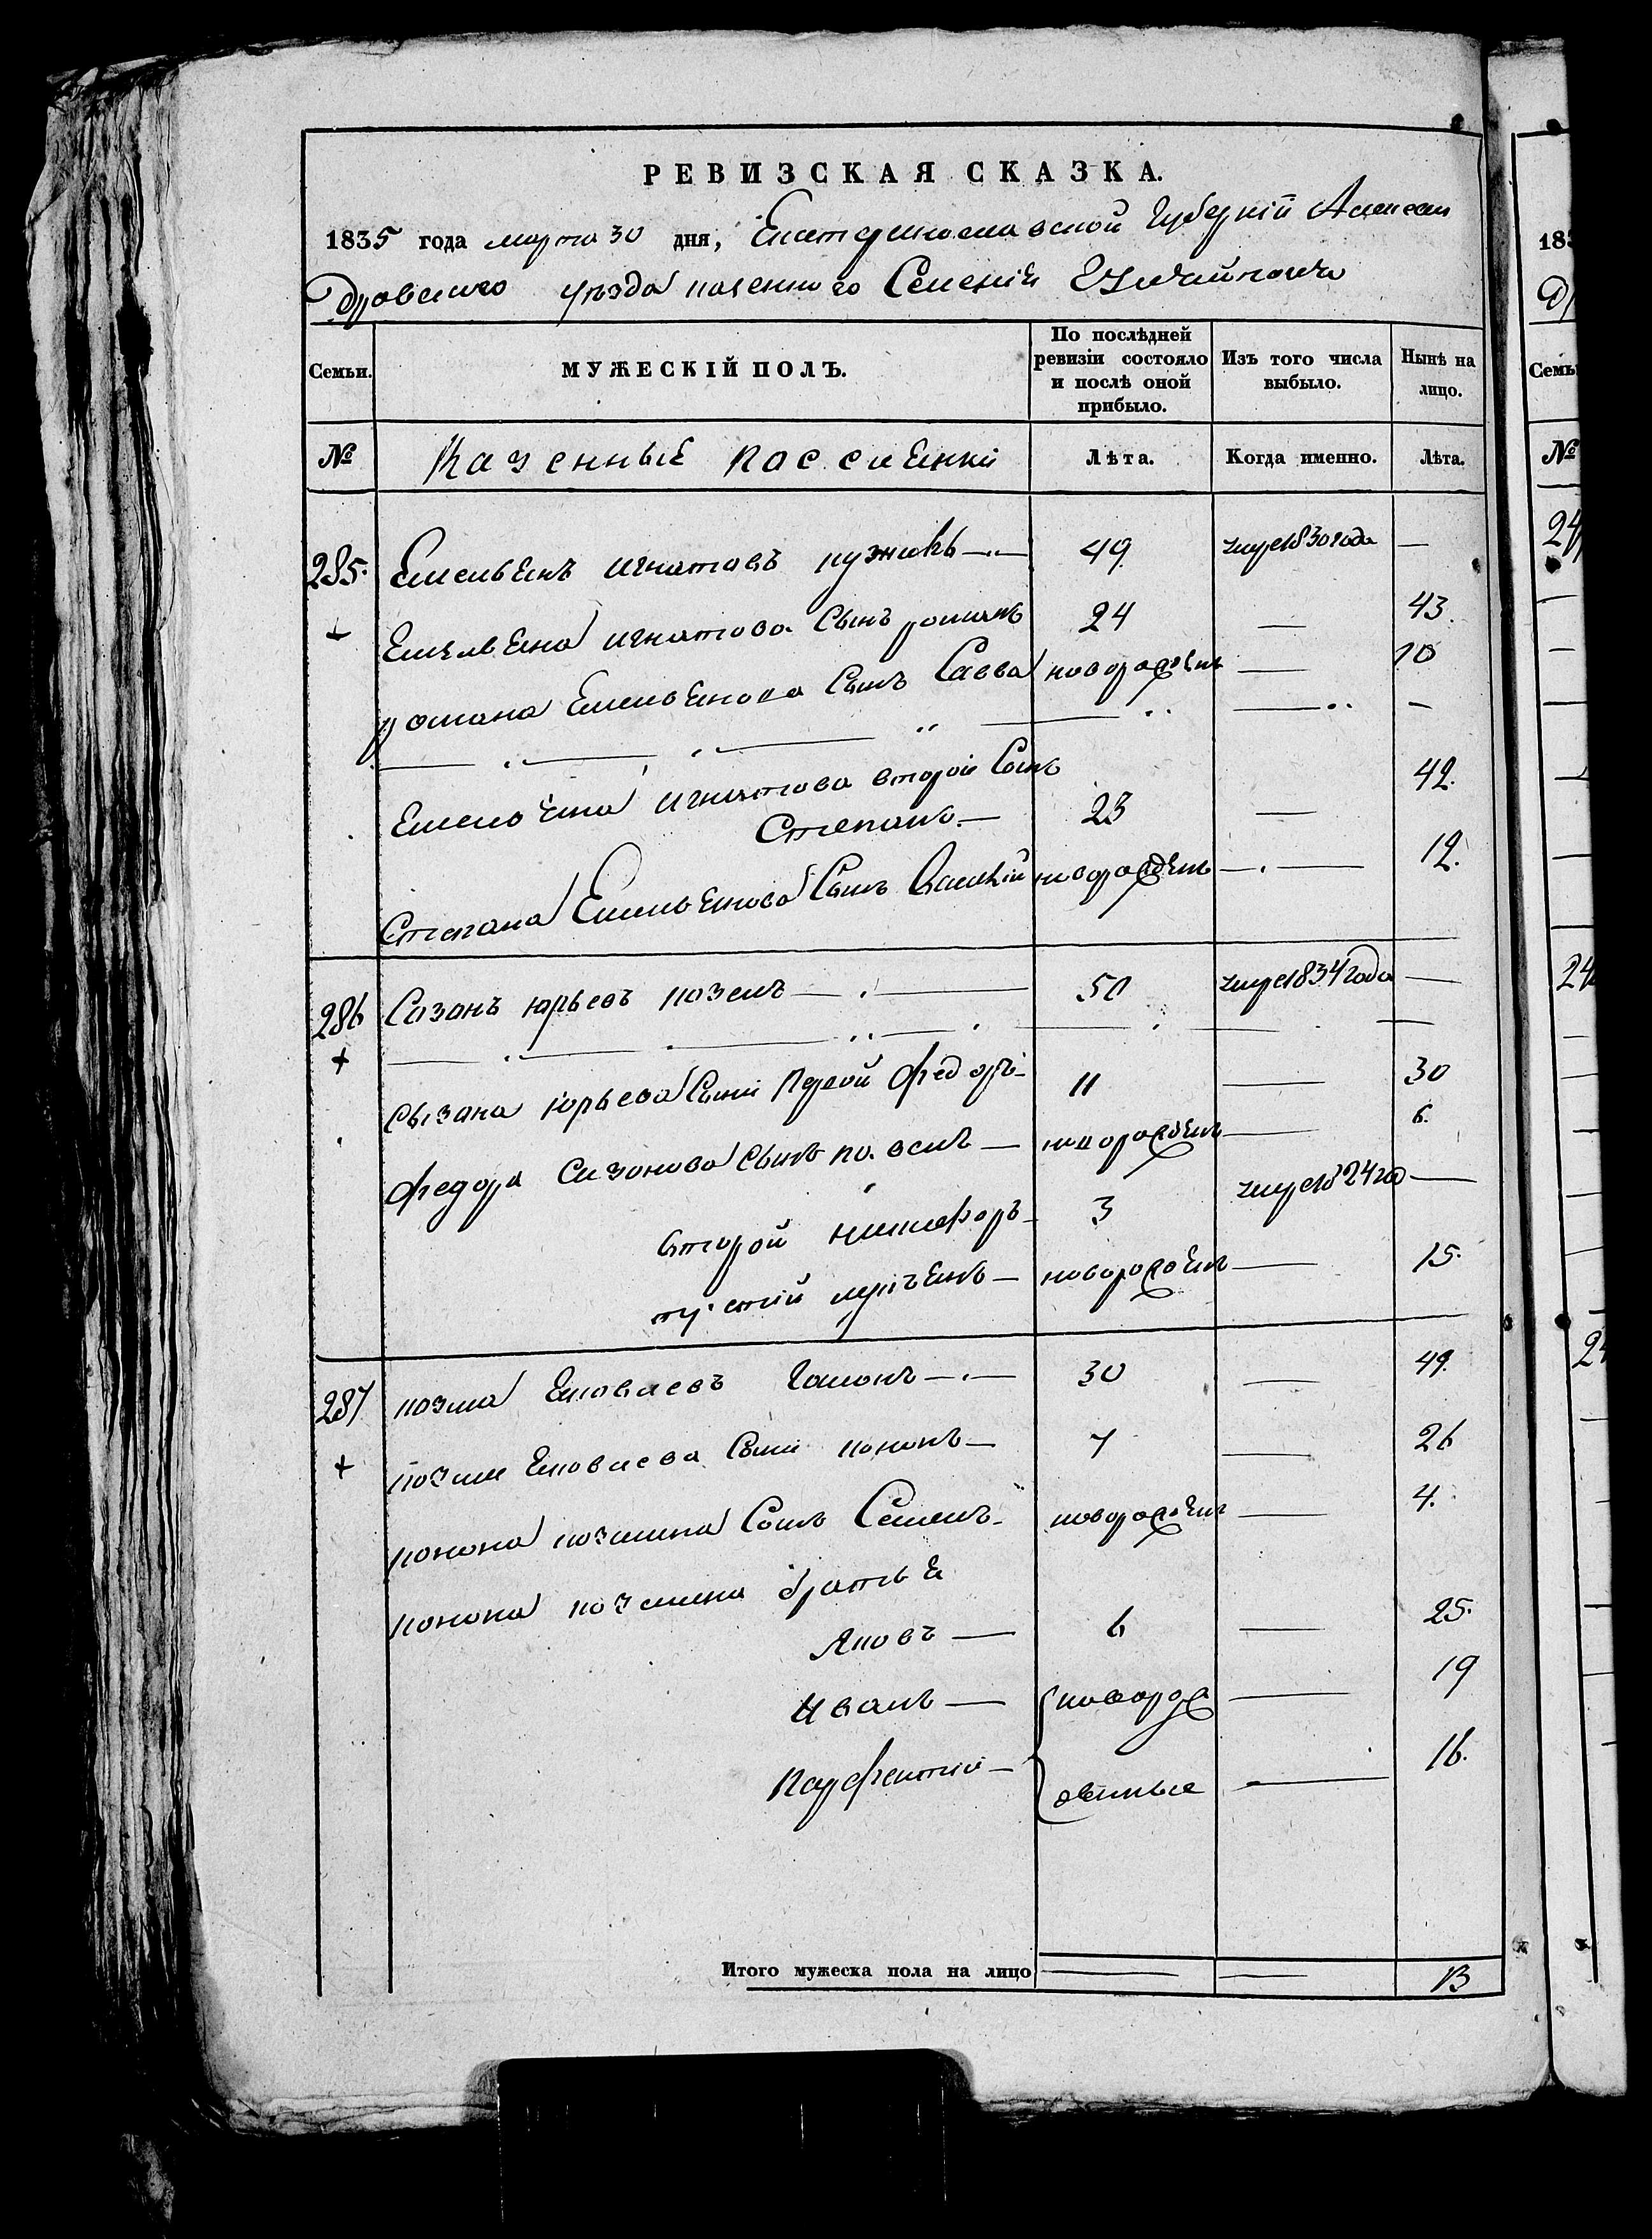 РЕВИЗСКАЯ СКАЗКА.
1835 года марта 30 дня, Екатеринославской Губернiи Алексан
Дровского уезда казенного Селенiя
Семьи. МУЖЕСКIЙ ПОЛЪ. По послѣдней ревизiи состояло и послѣ оной прибыло. Изъ того числа выбыло. Нынѣ на лицо.
№ Казенные поселенки Лѣта. Когда именно. Лѣта.
285. Емельенъ игнатовъ — 49 умре1830года —
Емельена игнатова Сынъ романъ 24 — 43.
романа Емельенова Сынъ Савва новорожденъ — 10
Емельена игнатова второй Сынъ 42.
Степанъ — 23 —
Степана Емельенова Сынъ новорожденъ — 12.
286 Сазонъ юрьевъ козелъ — 50 умре1834года —
Сызана юрьева Сыни Первой федоръ 11 — 30
федора Сазонова Сынъ — новорожденъ — 6.
второй никифоръ 3 умре1824го —
третiй лукъенъ — новорожденъ — 15.
287 козма Ековлевъ — 30 — 49.
козмиЕковлева Сыни кононъ — 7 — 26
конона козмина Сынъ Семенъ новорожденъ — 4.
конона козмина братье
Яковъ — 6 — 25.
Иванъ — новорож — 19
Парфентiй — денные — 16.
Итого мужеска пола на лицо — — 13
18
Семьи
№